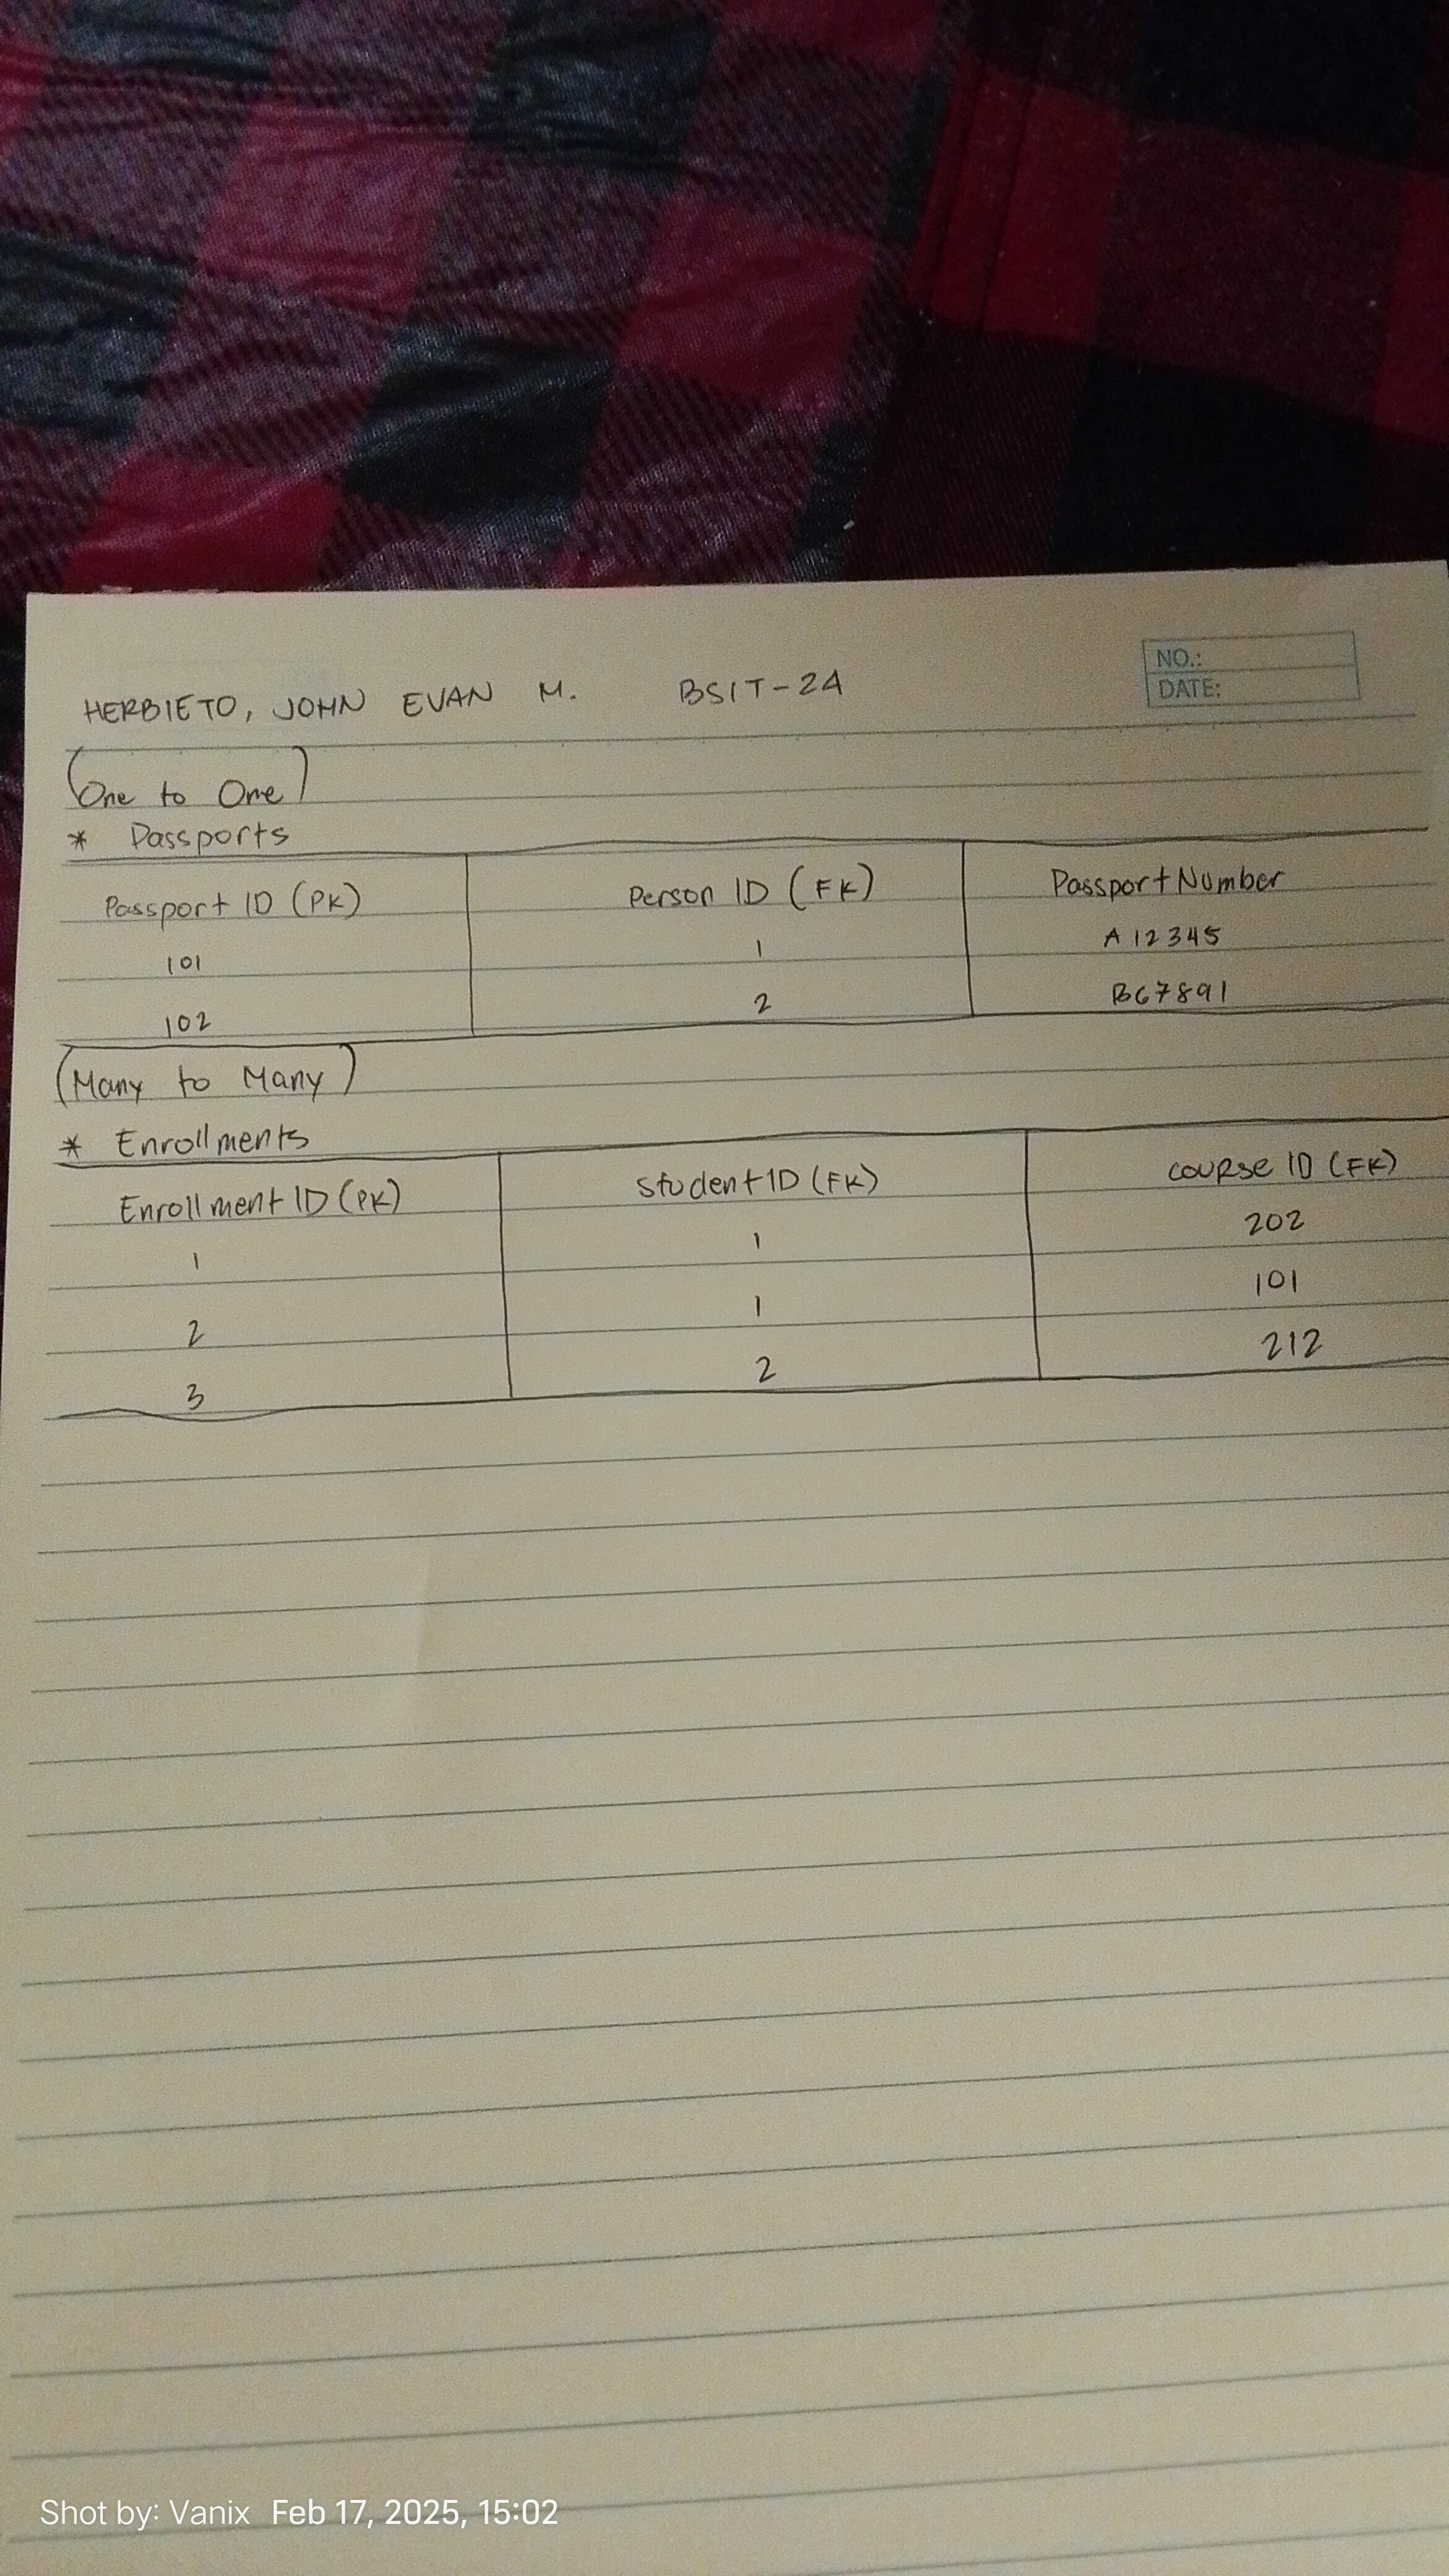 HERBIETO, JOHN EVAN M. BSIT-24
NO.:
DATE:
(One to One)
* Passports
Passport ID (PK) Person ID (FK) Passport Number
101 1 A12345
102 2 B67891
(Many to Many)
* Enrollments
Enrollment ID (PK) Student ID (FK) Course ID (FK)
1 1 202
2 1 101
3 2 212
Shot by: Vanix Feb 17, 2025, 15:02